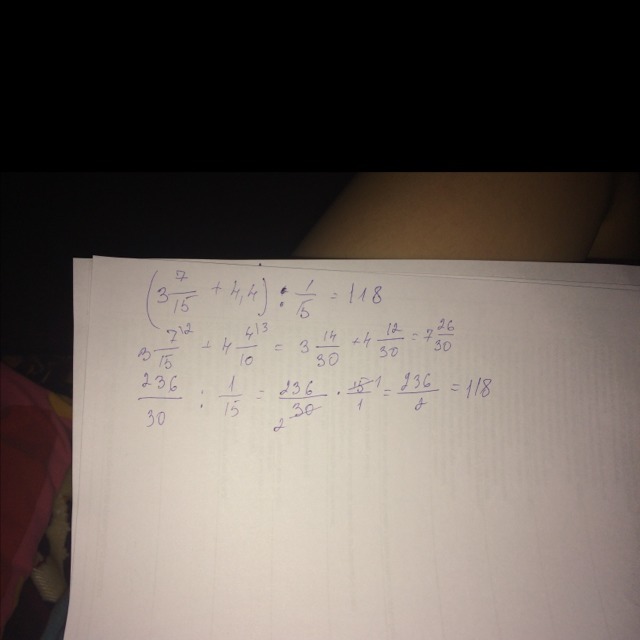 (3 7/15 + 4,4) : 1/15 = 118
3 7\2/15 + 4 4\3/10 = 3 14/30 + 4 12/30 = 7 26/30
236/30 : 1/15 = 236/2 30 · 15 1/1 = 236/2 = 118